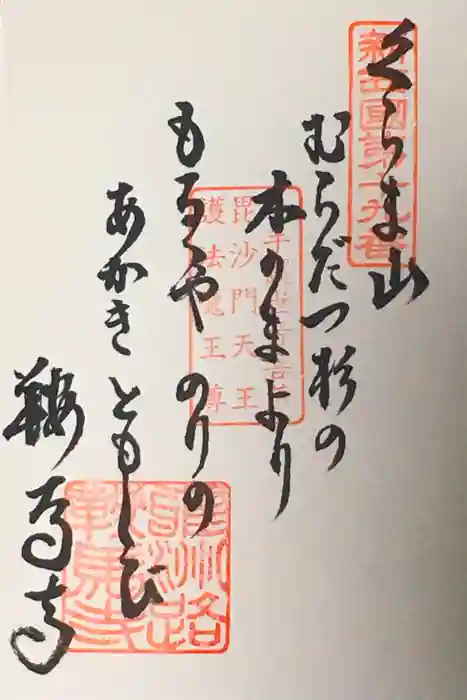 くらま山
むらだつ杉の
木のまより
もるゝや のりの
あかき ともしび
鞍馬寺
新西國第十九番
千手観世音菩薩
毘沙門天王
護法魔王尊
雍州路
鞍馬寺